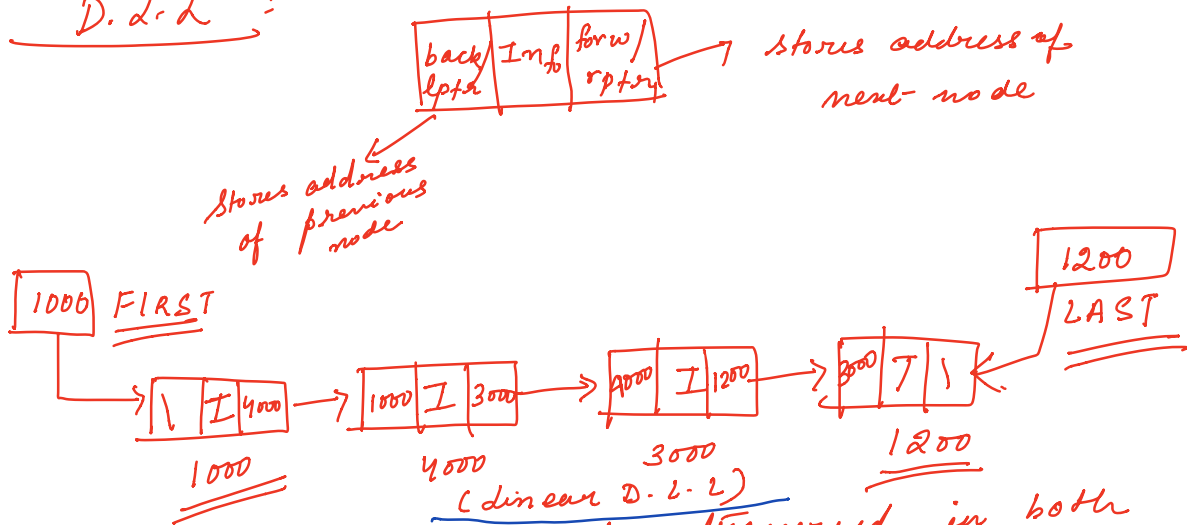 D.L.L :
back/ Inf forw/
lptr rptr
stores address of
next node
stores address
of previous
node
1000 FIRST
1200
LAST
\ I 4000
1000 I 3000
4000 I 1200
3000 I \
1000
4000
3000
1200
(Linear D.L.L)
in both